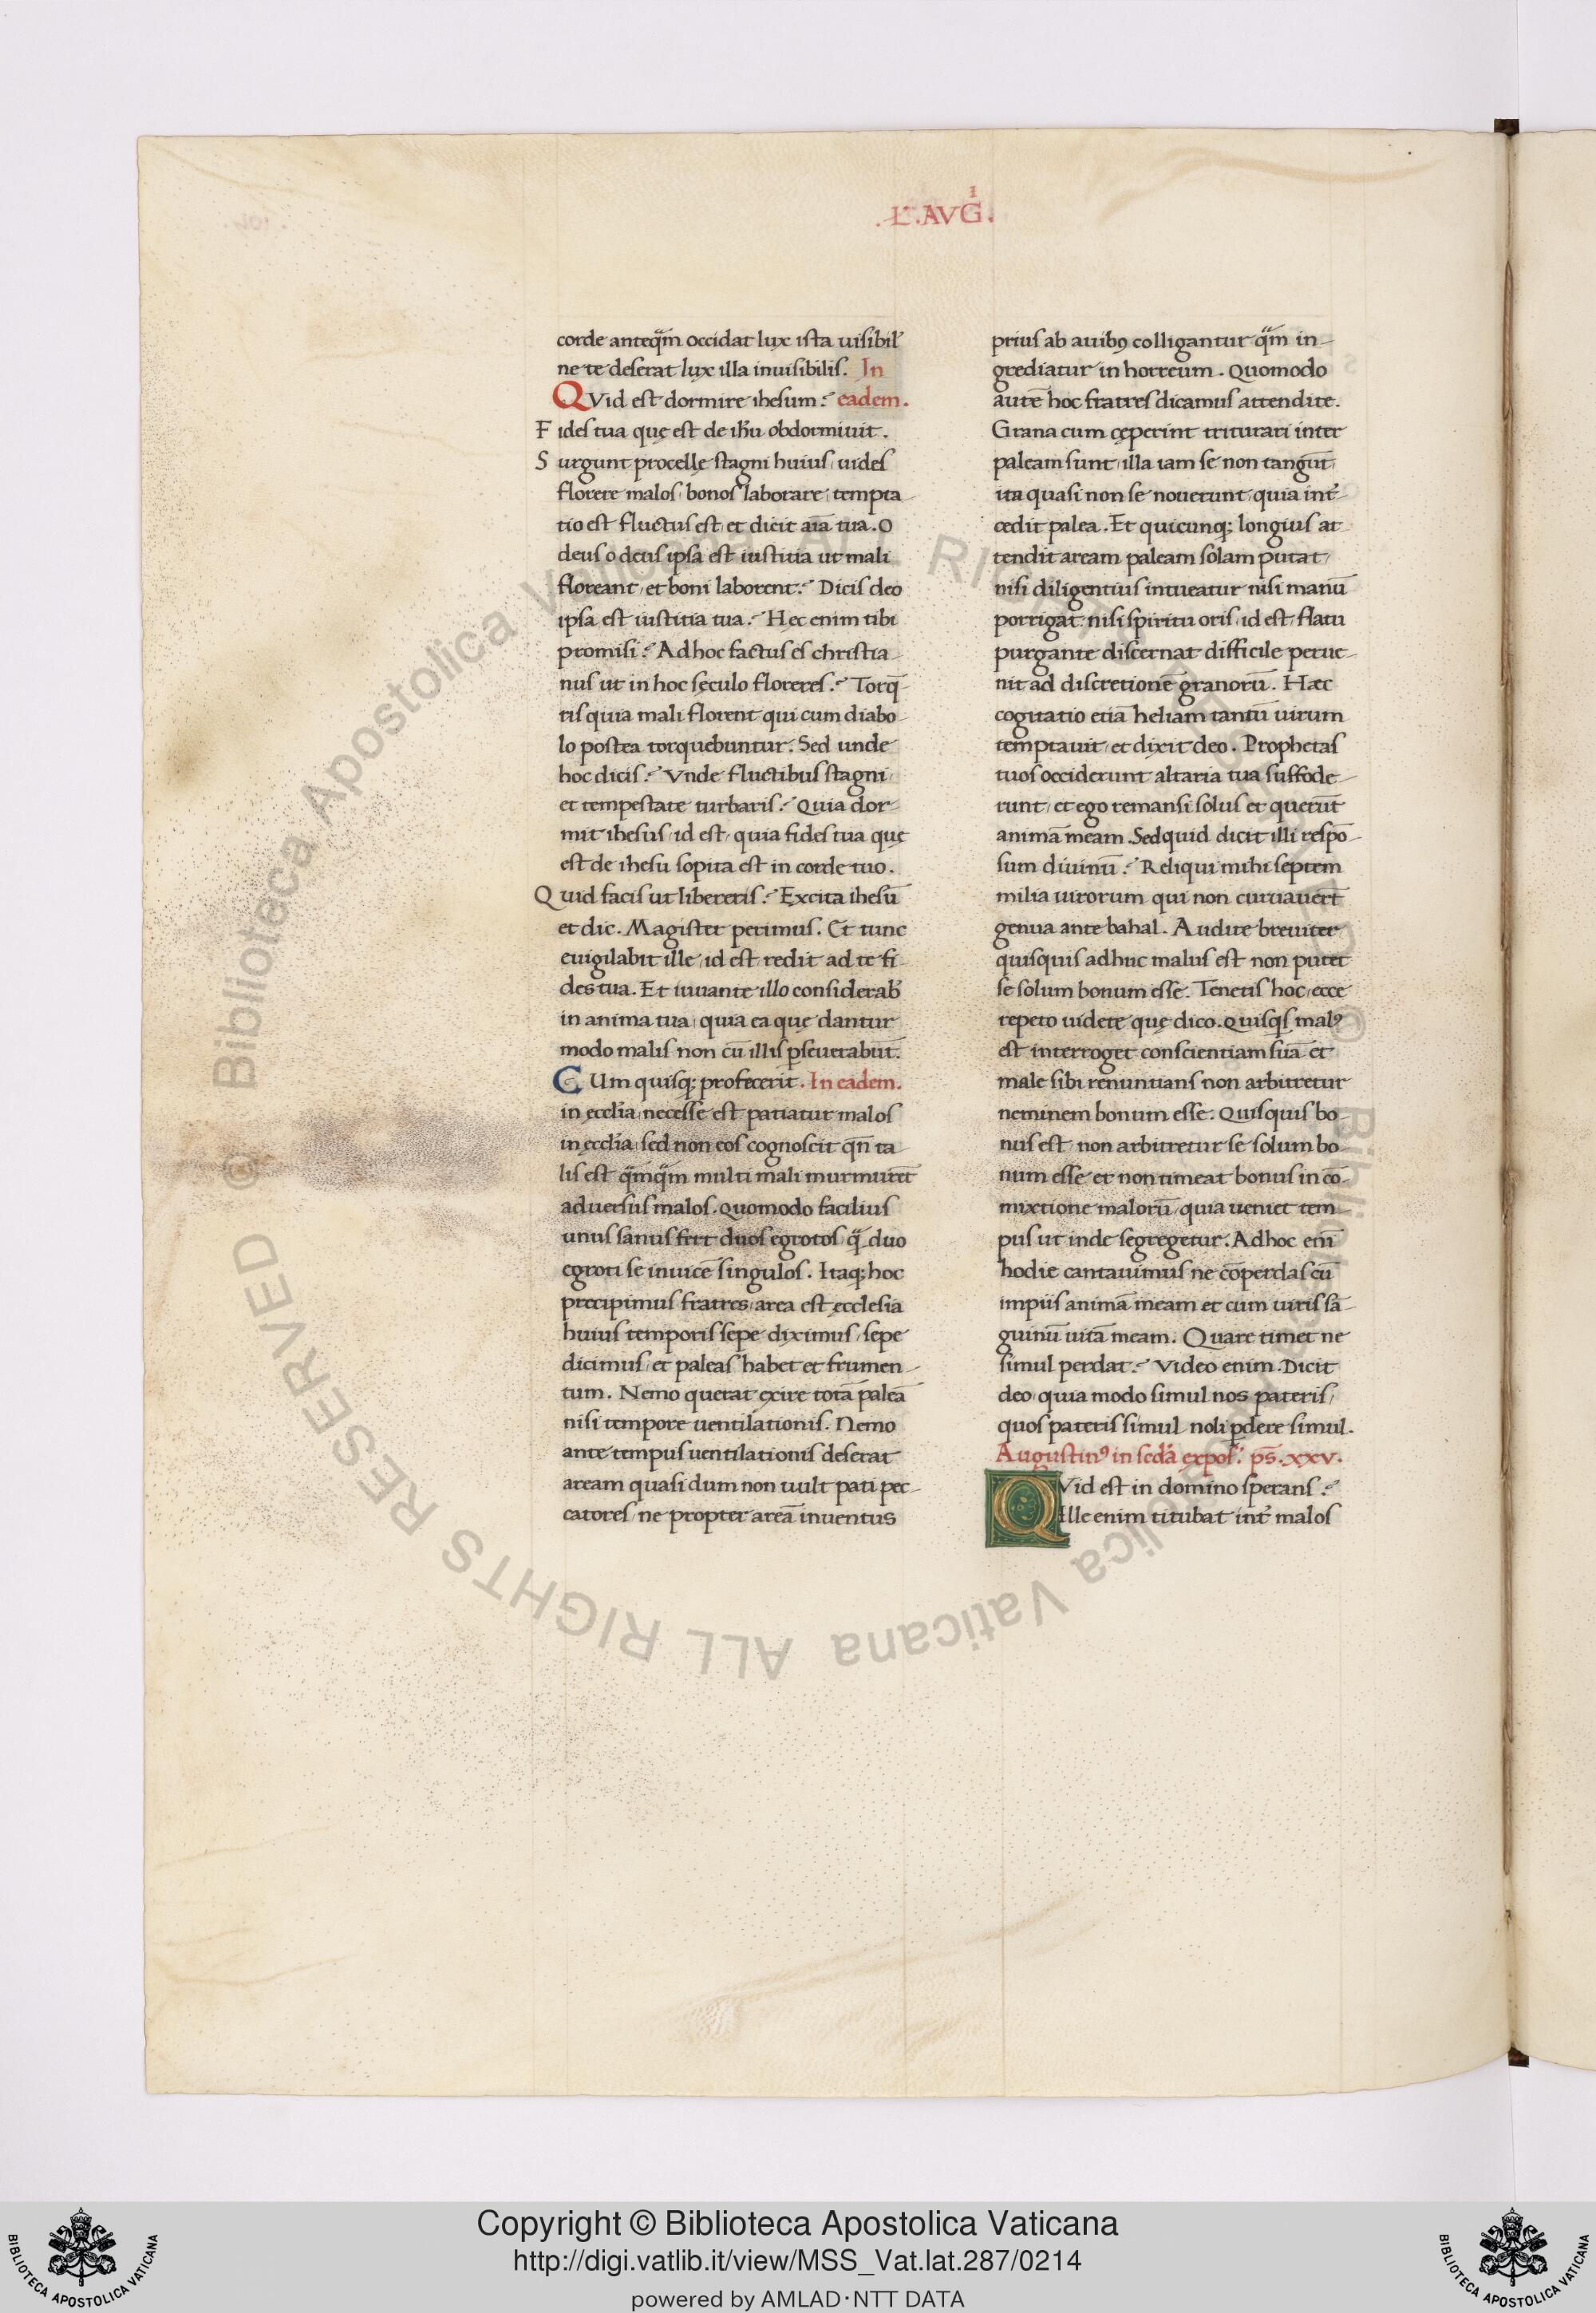 .L̅.AVGͥ.
corde anteq̃m occidat lux ista uisibil̛
ne te deserat lux illa inuisibilis. In
QVid est dormire ihesum? eadem.
Fides tua quę est de ih̅u obdormiuit.
Surgunt procellę stagni huius, uides
florere malos, bonos laborare, tempta-
tio est fluctus est, et dicit aīa tua. O
deus o deus ipsa est iustitia ut mali
floreant, et boni laborent? Dicis deo
ipsa est iustitia tua? Hęc enim tibi
promisi? Ad hoc factus es christia-
nus ut in hoc sęculo floreres? Torq̄-
ris quia mali florent, qui cum diabo-
lo postea torquebuntur. Sed unde
hoc dicis? Vnde fluctibus stagni,
et tempestate turbaris? Quia dor-
mit ihesus, id est, quia fides tua quę
est de ihesu sopita est in corde tuo.
Quid facis ut libereris? Excita ihesū
et dic. Magister perimus. Et tunc
euigilabit ille, id est, redit ad te fi-
des tua. Et iuuante illo considerab̛
in anima tua, quia ea quę dantur
modo malis non cū illis ꝑseuerabūt.
CUm quisq; profecerit. In eadem.
in ęccl̅ia, necesse est patiatur malos
in ęccl̅ia, sed non eos cognoscit qn̄ ta-
lis est q̃mq̃m multi mali murmurēt
aduersus malos. Quomodo facilius
unus sanus fert duos egrotos, q̃ duo
egroti se inuicē singulos. Itaq; hoc
precipimus fratres, area est ecclesia
huius temporis, sepe diximus, sepe
dicimus, et paleas habet et frumen-
tum. Nemo querat exire totā paleā
nisi tempore uentilationis. Nemo
ante tempus uentilationis deserat
aream quasi dum non uult pati pec-
catores, ne propter areā inuentus
prius ab auibꝯ colligantur q̃m in-
grediatur in horreum. Quomodo
autē hoc fratres dicamus attendite.
Grana cum cęperint triturari inter
paleam sunt, illa iam se non tangūt,
ita quasi non se nouerunt, quia int̛-
cedit palea. Et quicunq; longius at-
tendit aream paleam solam putat,
nisi diligentius intueatur nisi manū
porrigat, nisi spiritu oris, id est, flatu
purgante discernat difficile perue-
nit ad discretionē granorū. Hæc
cogitatio etiā heliam tantū uirum
temptauit, et dixit deo. Prophetas
tuos occiderunt altaria tua suffode-
runt, et ego remansi solus et querūt
animā meam. Sed quid dicit illi respō-
sum diuinū? Reliqui mihi septem
milia uirorum qui non curuauer̄t
genua ante bahal. Audite breuiter
quisquis adhuc malus est non putet
se solum bonum esse. Tenetis hoc, ecce
repeto uidete quę dico. Quisq̇s malꝰ
est interroget conscientiam suā et
male sibi renuntians non arbitretur
neminem bonum esse. Quisquis bo-
nus est, non arbitretur se solum bo-
num esse et non timeat bonus in cō-
mixtione malorū, quia ueniet tem-
pus ut inde segregetur. Ad hoc eni̅
hodie cantauimus ne cōperdas cū
impiis animā meam et cum uiris sā-
guinū uitā meam. Quare timet ne
simul perdat? Video enim. Dicit
deo, quia modo simul nos pateris,
quos pateris simul noli ꝑdere simul.
Augustinꝰ in scd̅a expos̛. ps̄. xxv.
QVid est in domino sperans?
Ille enim titubat int̛ malos
© Biblioteca Apostolica Vaticana ALL RIGHTS RESERVED
Copyright © Biblioteca Apostolica Vaticana
http://digi.vatlib.it/view/MSS_Vat.lat.287/0214
powered by AMLAD·NTT DATA
BIBLIOTECA APOSTOLICA VATICANA
BIBLIOTECA APOSTOLICA VATICANA